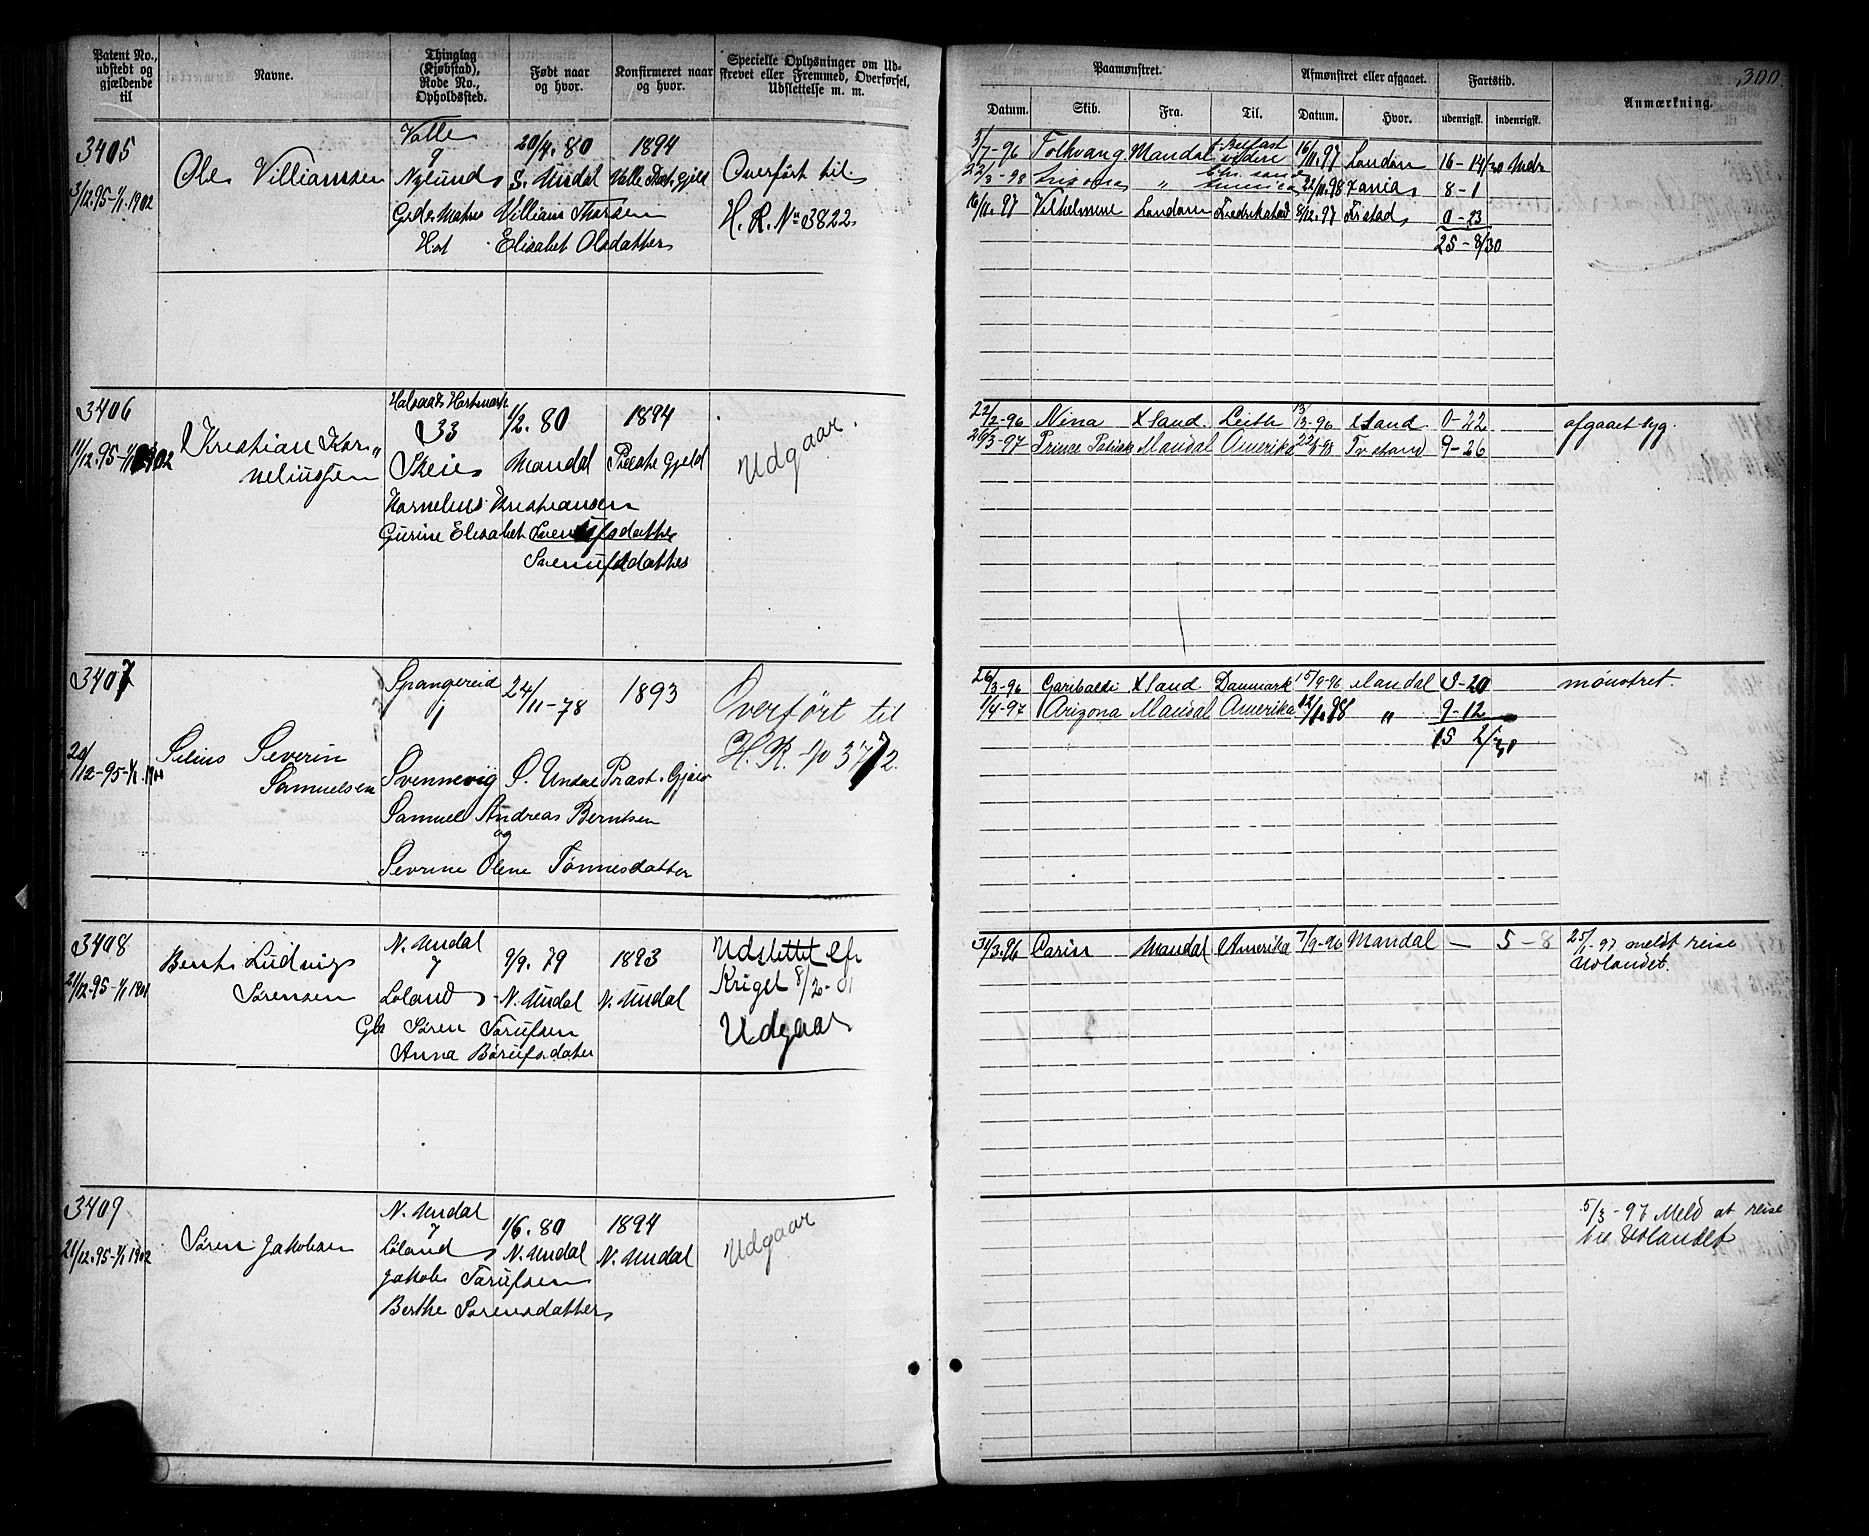 Patent No., udstedt og gjældende til
Navne.
Thinglag (Kjøbstad), Rode No., Opholdssted.
Født naar og hvor.
Konfirmeret naar og hvor.
Specielle Oplysninger om Udstrevet eller Fremmed, Overførsel, Udslettelse m. m.
3405
3/12.95-1/1.1902
Ole Villiamsen
Valle
9
Nylund
20/4.80
S. Undal
1894
Valle Præst.gjeld
Villiam Thorsen
Elisabet Olsdatter
Overført til
H. R. No 3822
3406
11/12.95-1/1 1902
Kristian Kor„
neliussen
Halsaa & Hartmark
33
Skeie
1/2.80
Mandal
1894
Præste Gjeld
Kornelius Kristiansen
Gurine Elisabet
Svenufsdatter
Udgaar.
3407
20/12-95-1/1.19
Selius Severin
Samuelsen
Spangereid
1
24/11-78
1893
Svennevig S. Undal Præst. Gjeld
Samuel Andreas Berntsen
og
Sevrine Olene Tønnesdatter
Overført til
H. R. No 3772.
3408
21/12.95-1/1 1901
Bernt Ludvig
Sørensen
N. Undal
7
Løland
9/9.79
N. Undal
1893
N. Undal
Søren Tarufsen
Anna Børufsdater
Udslettet efr
Kriget 8/2-01
Udgaar
3409
21/12.95-1/1 1902
Søren Jakobsen
N. Undal
7
Løland
1/6.80
N. Undal
1894
N. Undal
Jakob Tarufsen
Berthe Sørensdatter
Udgaar
300.
Paamønstret.
Afmønstret eller afgaaet.
Fartstid.
Anmærkning.
Datum. Skib. Fra. Til. Datum. Hvor. udenrigsk. indenrigsk.
3/7-96 Folkvang Mandal Belfast videre 16/11.97 London 16-14/30 Mdr
22/3-98 „ America 22/11.98 Xania 8-1
16/11.97 Vilhelmine London Fredrikstad 8/12.97 Frstad 0-23
25-8/30
22/2-96 Nina X Sand. Leith 13/3-96 X Sand. 0-22 afgaaet syg.
26/3-97 Prince Patrick Mandal Amerika 22/1-98 Fr strand 9-26
26/3-96 Garibaldi X Sand. Danmark 15/9-96 Mandal 3-20 mønstret.
1/4-97 Arizona Mandal Amerika 12/1.98 „ 9-12
15 2/30
31/3.96 Carin Mandal Amerika 7/9-96 Mandal — 5-8 25/1-97 meldt reise
Udlandet.
5/3-97 Meld at reise
til Udlandet